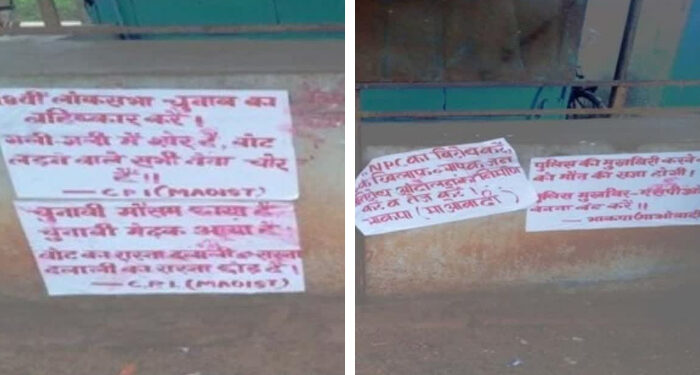 18वीं लोकसभा चुनाव का
बहिष्कार करें !
गली-गली में शोर है, वोट
लड़ने वाले सभी नेता चोर
है !!
— C.P.I (MAOIST)
चुनावी मौसम छाया है
चुनावी मेढ़क आया है
वोट का रास्ता दलाली का रास्ता
दलाली का रास्ता छोड़ दें !
— C.P.I. (MAOIST)
NPC का विरोध करें
के खिलाफ व्यापक जन
आंदोलन निर्माण
करें व तेज करें !
भाकपा (माओवादी)
पुलिस की मुखबिरी करने
की मौत की सजा होगी !
पुलिस मुखबिर-एसपीओ
बनना बंद करें !!
— भाकपा (माओवादी)